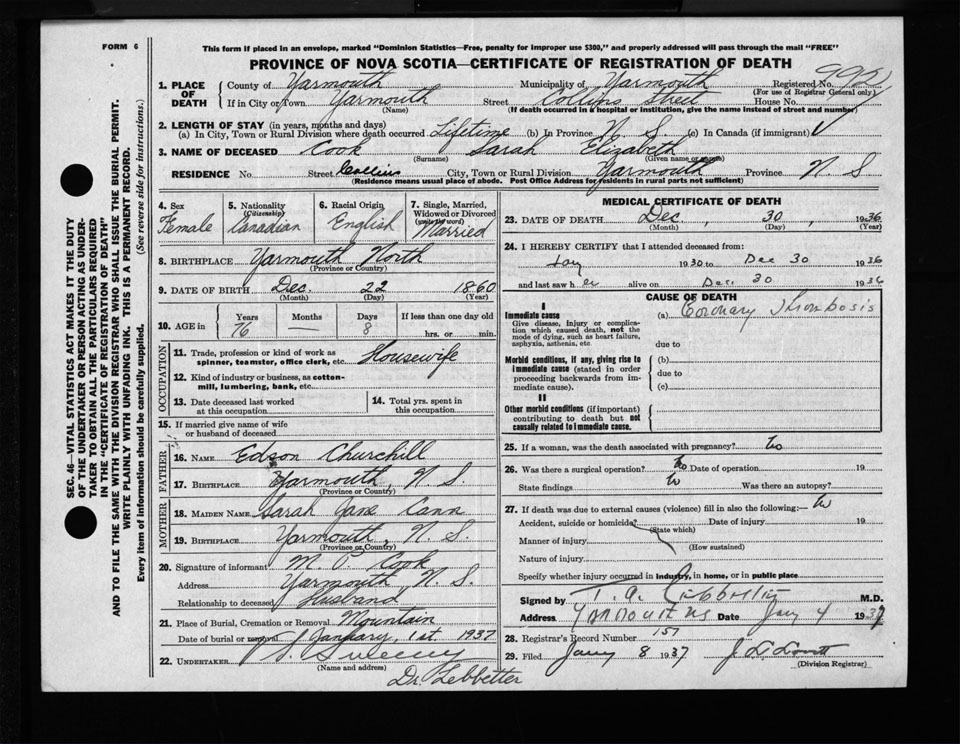 FORM 6
This form if placed in an envelope, marked "Dominion Statistics—Free, penalty for improper use $300," and properly addressed will pass through the mail "FREE"
PROVINCE OF NOVA SCOTIA—CERTIFICATE OF REGISTRATION OF DEATH
1. PLACE OF DEATH County of Yarmouth Municipality of Yarmouth Registered No.
(For use of Registrar General only)
If in City or Town Yarmouth Street Collins Street House No.
(Name) (If death occurred in a hospital or institution, give the name instead of street and number)
2. LENGTH OF STAY (in years, months and days)
(a) In City, Town or Rural Division where death occurred Lifetime (b) In Province N. S. (c) In Canada (if immigrant)
3. NAME OF DECEASED Cook Sarah Elizabeth
(Surname) (Given name or names)
RESIDENCE No. Street Collins City, Town or Rural Division Yarmouth Province N. S
(Residence means usual place of abode. Post Office Address for residents in rural parts not sufficient)
4. Sex Female
5. Nationality (Citizenship) Canadian
6. Racial Origin English
7. Single, Married, Widowed or Divorced (write the word) Married
8. BIRTHPLACE Yarmouth North
(Province or Country)
9. DATE OF BIRTH Dec. 22 1860
(Month) (Day) (Year)
10. AGE in Years Months Days If less than one day old
76 — 8 hrs. or min.
OCCUPATION
11. Trade, profession or kind of work as spinner, teamster, office clerk, etc. Housewife
12. Kind of industry or business, as cotton-mill, lumbering, bank, etc.
13. Date deceased last worked at this occupation
14. Total yrs. spent in this occupation
15. If married give name of wife or husband of deceased
FATHER
16. NAME Edson Churchill
17. BIRTHPLACE Yarmouth, N. S.
(Province or Country)
MOTHER
18. MAIDEN NAME Sarah Jane Cann
19. BIRTHPLACE Yarmouth, N. S.
(Province or Country)
20. Signature of informant M. P. Cook
Address Yarmouth N. S.
Relationship to deceased Husband
21. Place of Burial, Cremation or Removal Mountain
Date of burial or removal January, 1st 1937
22. UNDERTAKER Sweeny
(Name and address)
Dr. Lebbetter
MEDICAL CERTIFICATE OF DEATH
23. DATE OF DEATH Dec , 30 , 1936
(Month) (Day) (Year)
24. I HEREBY CERTIFY that I attended deceased from:
1930 to Dec 30 1936
and last saw her alive on Dec 30 1936
CAUSE OF DEATH
I
Immediate cause
Give disease, injury or complication which caused death, not the mode of dying, such as heart failure, asphyxia, asthenia, etc.
(a) Coronary Thrombosis
due to
Morbid conditions, if any, giving rise to immediate cause (stated in order proceeding backwards from immediate cause).
(b)
due to
(c)
II
Other morbid conditions (if important) contributing to death but not causally related to immediate cause.
25. If a woman, was the death associated with pregnancy? No
26. Was there a surgical operation? No Date of operation 19
State findings No Was there an autopsy?
27. If death was due to external causes (violence) fill in also the following:— No
Accident, suicide or homicide? Date of injury 19
(State which)
Manner of injury
(How sustained)
Nature of injury
Specify whether injury occurred in industry, in home, or in public place
Signed by T. A. M.D.
Address Yarmouth NS Date Jany 4 1937
28. Registrar's Record Number 157
29. Filed Jany 8 1937
(Division Registrar)
(See reverse side for instructions.)
SEC. 46—VITAL STATISTICS ACT MAKES IT THE DUTY
OF THE UNDERTAKER OR PERSON ACTING AS UNDER-
TAKER TO OBTAIN ALL THE PARTICULARS REQUIRED
IN THE "CERTIFICATE OF REGISTRATION OF DEATH"
AND TO FILE THE SAME WITH THE DIVISION REGISTRAR WHO SHALL ISSUE THE BURIAL PERMIT.
WRITE PLAINLY WITH UNFADING INK. THIS IS A PERMANENT RECORD.
Every item of information should be carefully supplied.